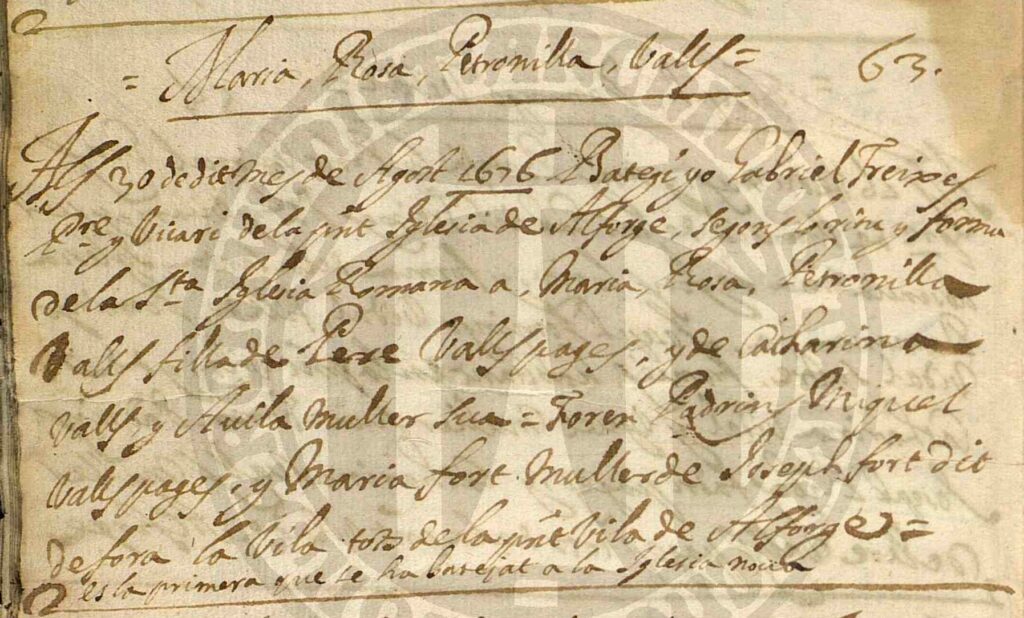 = Maria, Rosa, Petronilla, Valls = 63.
Als 30 de dit mes de Agost 1676 Bategi yo Gabriel Freixes
Pre y Vicari de la pnt Iglesia de Alforge, segons lo ritu y forma
de la Sta Iglesia Romana a, Maria, Rosa, Petronilla
Valls filla de Pere Valls pages, y de Catharina
Valls y Avila Muller sua = Foren Padrins Miquel
Valls pages, y Maria fort Muller de Joseph fort dit
de fora la Vila tots de la pnt Vila de Alforge =
es la primera que se ha batejat a la Iglesia nova